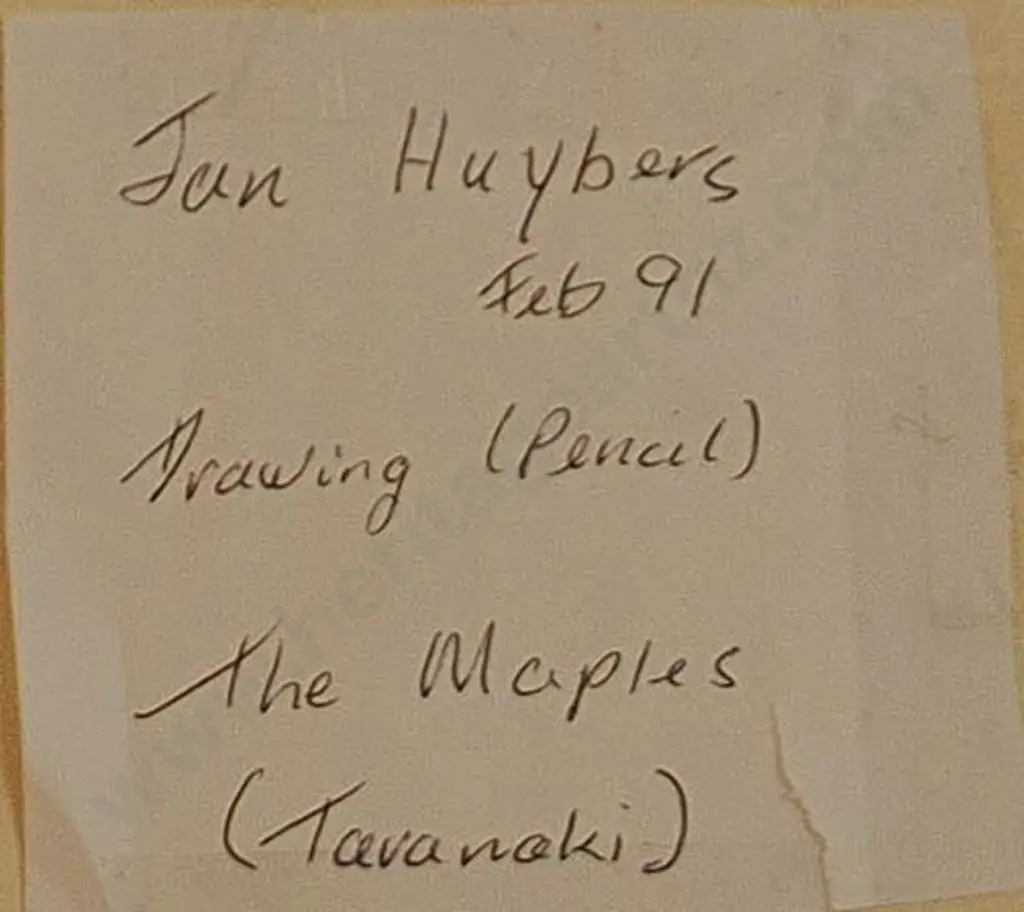 Jan Huybers
Feb 91
Drawing (Pencil)
The Maples
(Taranaki)